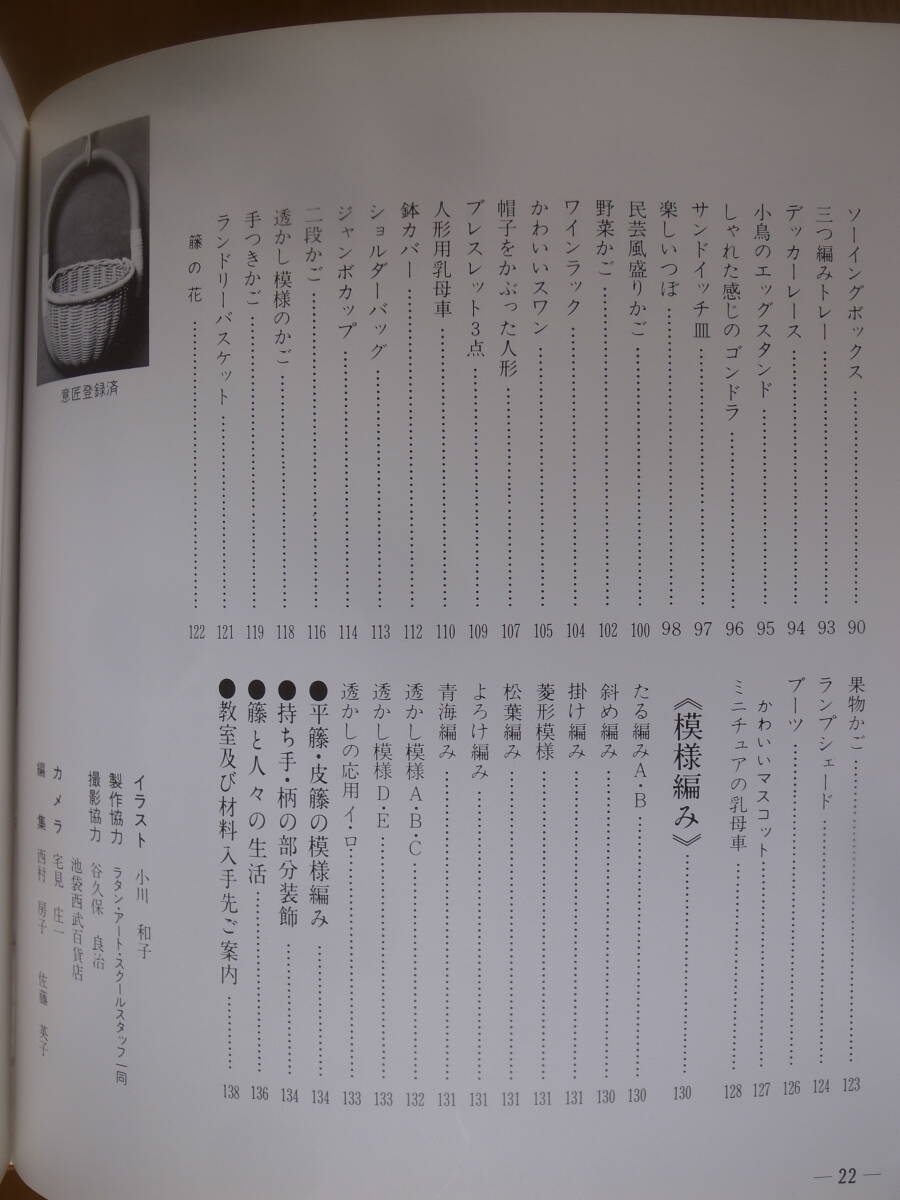 ソーイングボックス……90
三つ編みトレー……93
デッカーレース……94
小鳥のエッグスタンド……95
しゃれた感じのゴンドラ……96
サンドイッチ皿……97
楽しいつぼ……98
民芸風盛りかご……100
野菜かご……102
ワインラック……104
かわいいスワン……105
帽子をかぶった人形……107
ブレスレット3点……109
人形用乳母車……110
鉢カバー……112
ショルダーバッグ……113
ジャンボカップ……114
二段かご……116
透かし模様のかご……118
手つきかご……119
ランドリーバスケット……121
籐の花……122
果物かご……123
ランプシェード……124
ブーツ……126
かわいいマスコット……127
ミニチュアの乳母車……128
《模様編み》……130
たる編みA・B……130
斜め編み……130
掛け編み……131
菱形模様……131
松葉編み……131
よろけ編み……131
青海編み……131
透かし模様A・B・C……132
透かし模様D・E……133
透かしの応用イ・ロ……133
●平籐・皮籐の模様編み……134
●持ち手・柄の部分装飾……134
●籐と人々の生活……136
●教室及び材料入手先ご案内……138
イラスト 小川 和子
製作協力 ラタン・アート・スクールスタッフ一同
撮影協力 谷久保 良治
池袋西武百貨店
カメラ 宅見 庄一
編集 西村 房子 佐藤 英子
意匠登録済
—22—